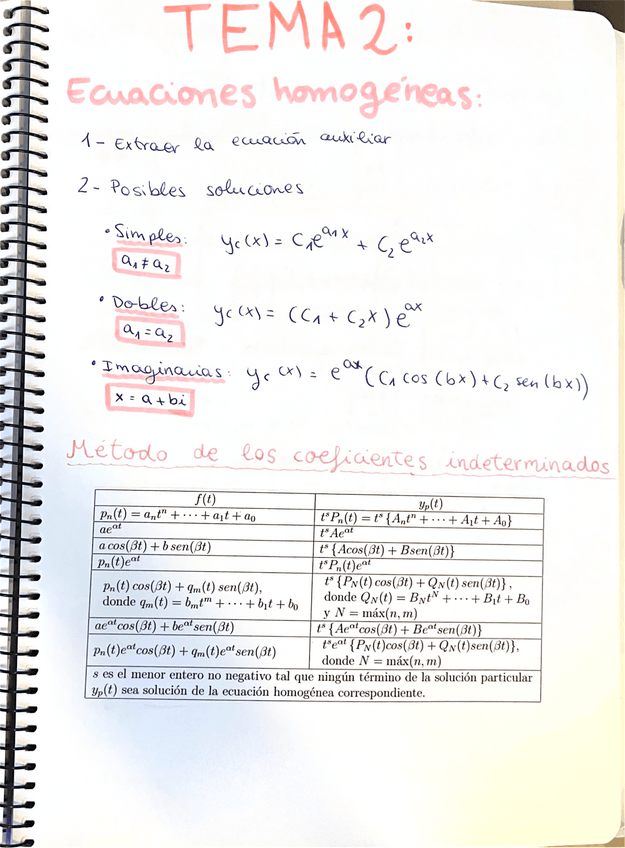 TEMA 2:
Ecuaciones homogéneas:
1- Extraer la ecuación auxiliar
2- Posibles soluciones
• Simples: yc(x) = C₁e^{a₁x} + C₂e^{a₂x}
a₁ ≠ a₂
• Dobles: yc(x) = (C₁ + C₂x) e^{ax}
a₁ = a₂
• Imaginarias: yc(x) = e^{ax}(C₁ cos (bx) + C₂ sen (bx))
x = a + bi
Método de los coeficientes indeterminados
f(t) y_p(t)
p_n(t) = a_nt^n + ⋯ + a₁t + a₀ t^sP_n(t) = t^s {A_nt^n + ⋯ + A₁t + A₀}
ae^{αt} t^sAe^{αt}
a cos(βt) + b sen(βt) t^s {Acos(βt) + Bsen(βt)}
p_n(t)e^{αt} t^sP_n(t)e^{αt}
p_n(t) cos(βt) + q_m(t) sen(βt), t^s {P_N(t) cos(βt) + Q_N(t) sen(βt)},
donde q_m(t) = b_mt^m + ⋯ + b₁t + b₀ donde Q_N(t) = B_Nt^N + ⋯ + B₁t + B₀
y N = máx(n, m)
ae^{αt}cos(βt) + be^{αt}sen(βt) t^s {Ae^{αt}cos(βt) + Be^{αt}sen(βt)}
p_n(t)e^{αt}cos(βt) + q_m(t)e^{αt}sen(βt) t^se^{αt} {P_N(t)cos(βt) + Q_N(t)sen(βt)},
donde N = máx(n, m)
s es el menor entero no negativo tal que ningún término de la solución particular
y_p(t) sea solución de la ecuación homogénea correspondiente.